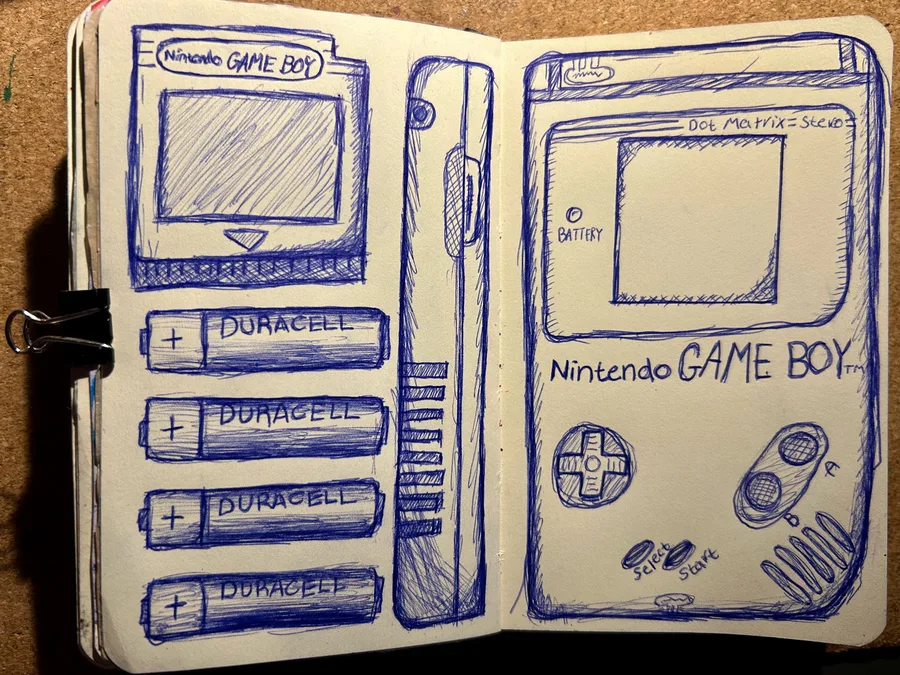 Nintendo GAME BOY
+ DURACELL
+ DURACELL
+ DURACELL
+ DURACELL
Dot Matrix = Stero
BATTERY
Nintendo GAME BOY TM
A
B
Select
Start